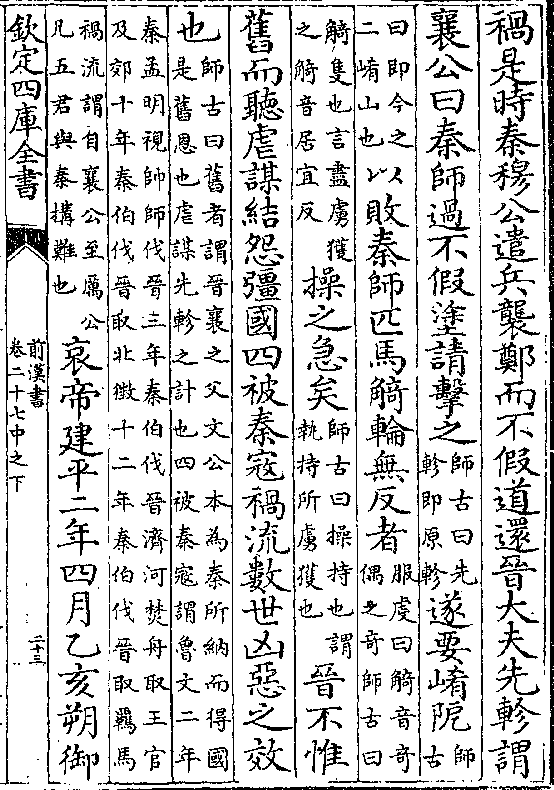 禍是時秦穆公遣兵襲鄭而不假道還晉大夫先軫謂
襄公曰秦師過不假塗請擊之師古曰先軫即原軫遂要崤阨師古
曰即今之二崤山也以敗秦師匹馬觭輪無反者服虔曰觭音奇偶之奇師古曰
觭隻也言盡虜獲之觭音居宜反操之急矣師古曰操持也謂執持所虜獲也晉不惟
舊而聽虐謀結怨彊國四被秦寇禍流數世凶惡之效
也師古曰舊者謂晉襄之父文公本為秦所納而得國是舊恩也虐謀先軫之計也四被秦寇謂魯文二年
秦孟明視帥師伐晉三年秦伯伐晉濟河焚舟取王官及郊十年秦伯伐晉取北徵十二年秦伯伐晉取羈馬
禍流謂自襄公至厲公凡五君與秦搆難也哀帝建平二年四月乙亥朔御
欽定四庫全書
前漢書
卷二十七中之下
二十三